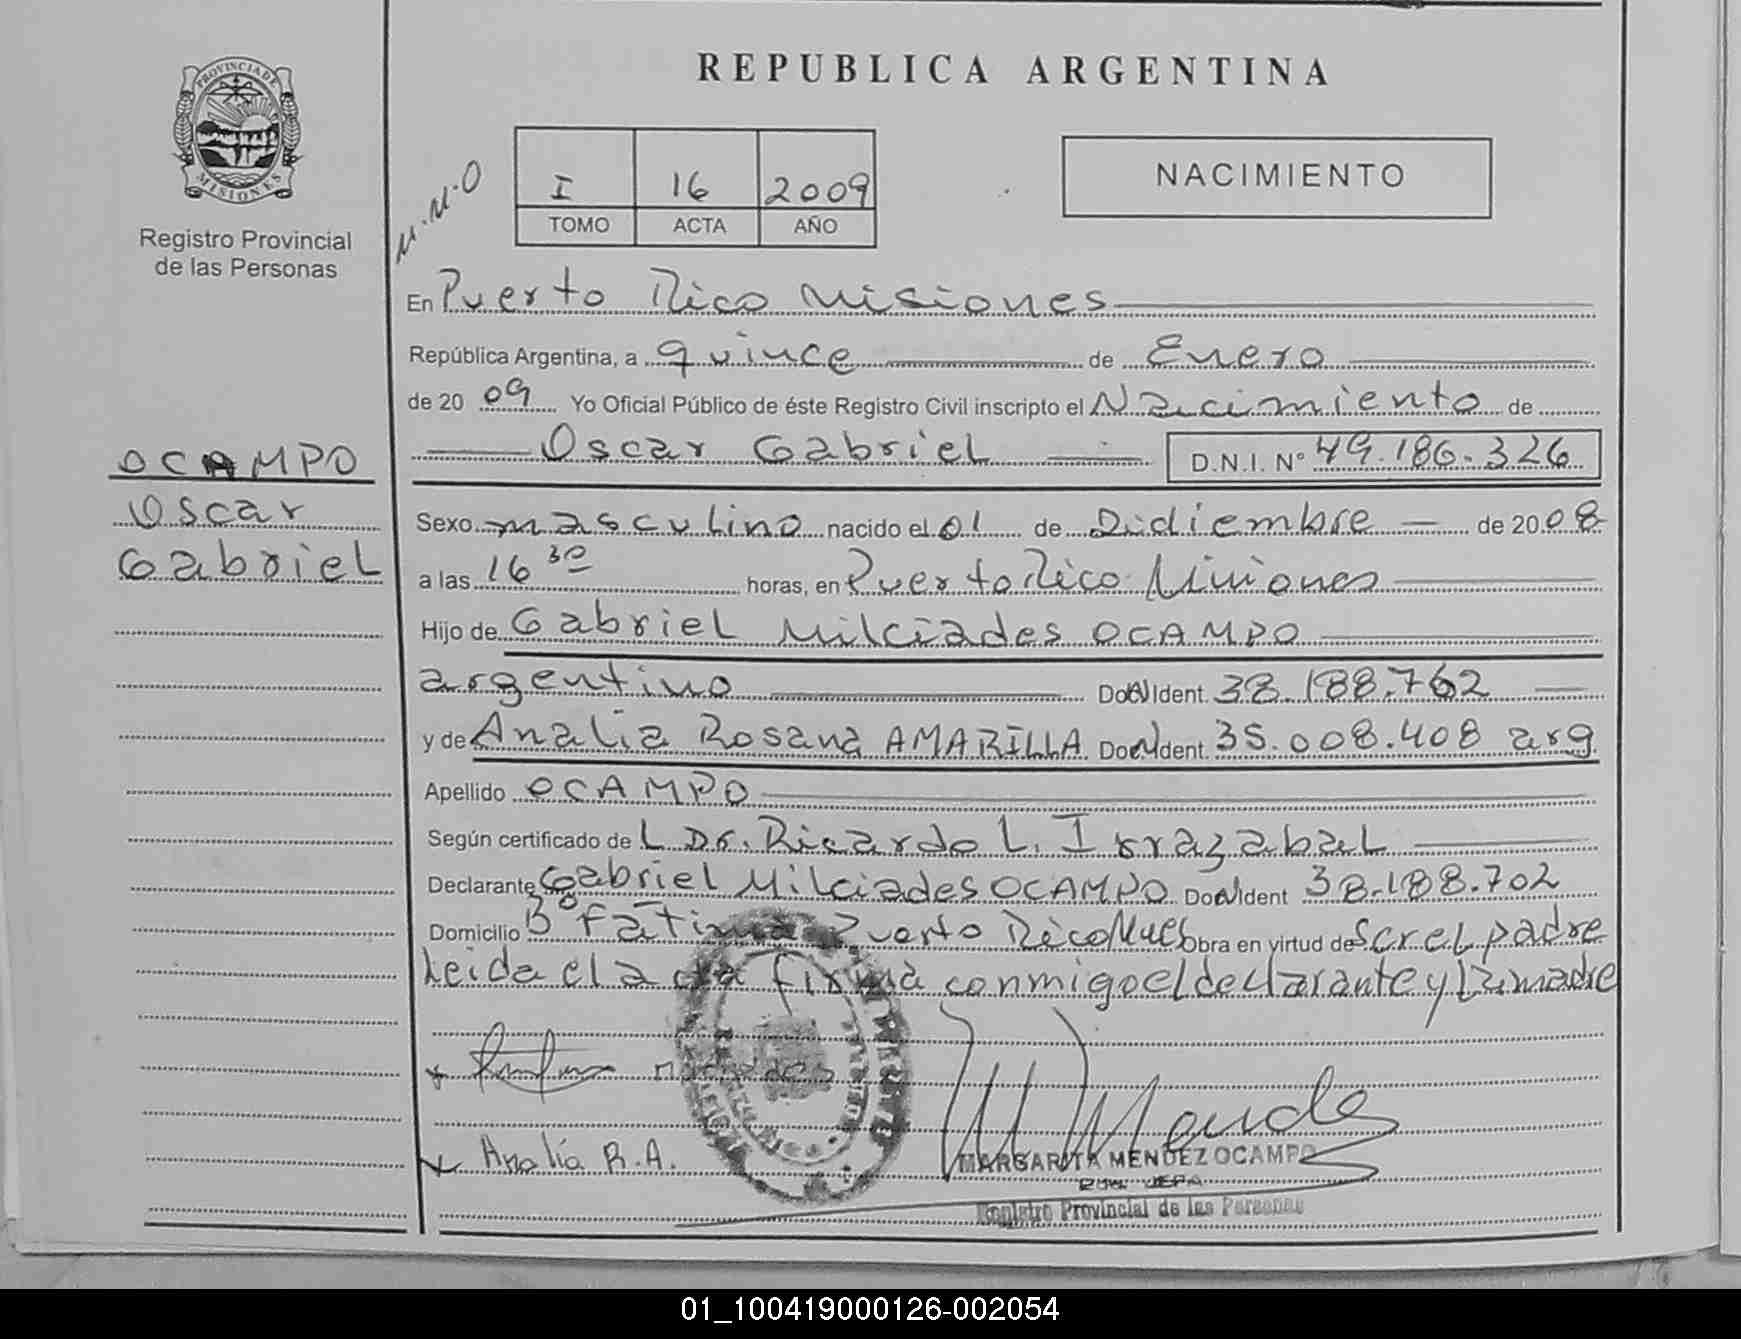 REPUBLICA ARGENTINA
PROVINCIA DE MISIONES
Registro Provincial
de las Personas
M.M.O
I 16 2009
TOMO ACTA AÑO
NACIMIENTO
En Puerto Rico Misiones
República Argentina, a quince de Enero
de 20 09 Yo Oficial Público de éste Registro Civil inscripto el Nacimiento de
Oscar Gabriel D.N.I. N° 49.186.326
OCAMPO
Oscar
Gabriel
Sexo masculino nacido el 01 de Diciembre de 20 08
a las 16 30 horas, en Puerto Rico Misiones
Hijo de Gabriel Milciades OCAMPO
argentino Doc. Ident. 38.188.762
y de Analia Rosana AMARILLA Doc. Ident. 35.008.408 arg
Apellido OCAMPO
Según certificado de L Dr. Ricardo L. Irrazabal
Declarante Gabriel Milciades OCAMPO Doc. Ident 38.188.702
Domicilio B° Fatima Puerto Rico Mnes Obra en virtud de Ser el padre
Leida el acta firma conmigo el declarante y la madre
Analía R.A.
MARGARITA MENDEZ OCAMPO
JEFA
Registro Provincial de las Personas
01_100419000126-002054